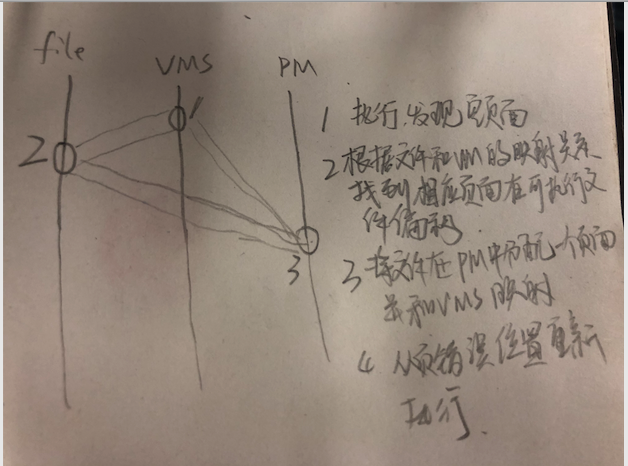 file
VMS
PM
1
2
3
1 执行,发现页面
2 根据文件和VM的映射关系
找到相应页面在可执行文
件偏移
3 将文件在PM中分配一个页面
并和VMS映射
4 从页错误位置重新
执行.